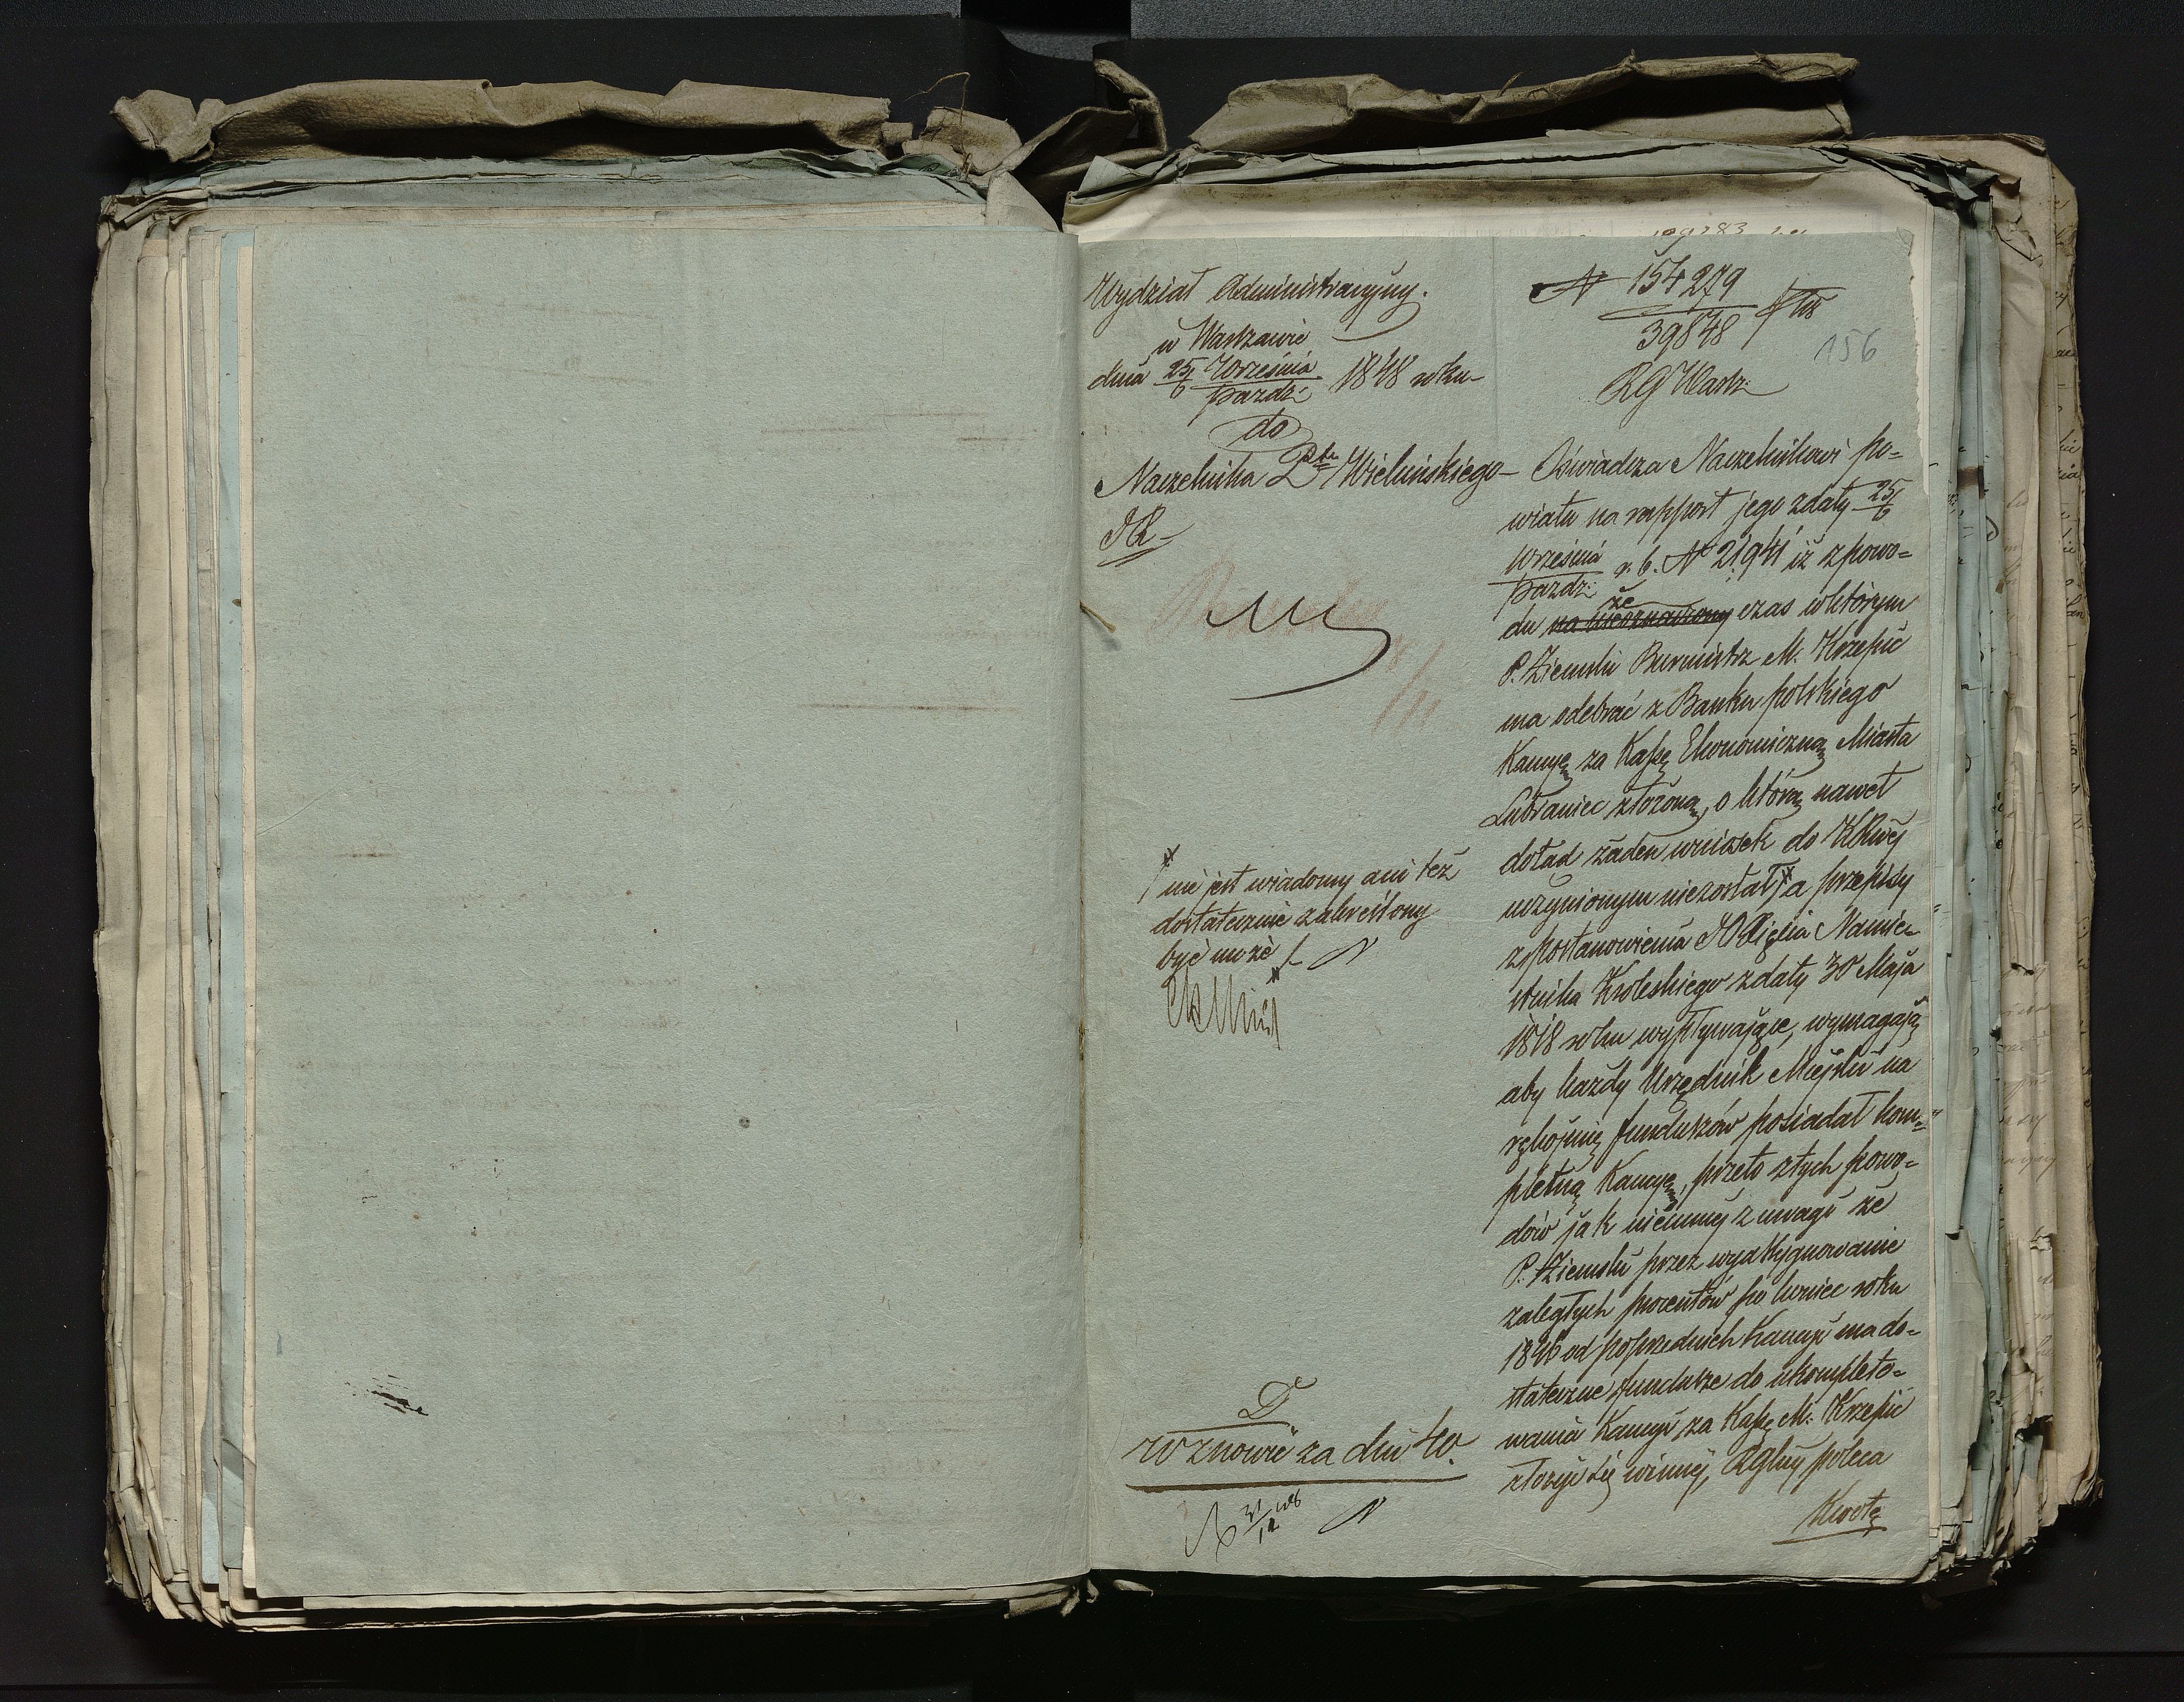 Wydział Administracyjny.
w Warszawie
dnia 25/6 Września/Paźdz: 1848 roku
do
Naczelnika Ptu Wieluńskiego
N 154279/39848
156
RG Warsz:
Oświadcza Naczelnikowi po=
wiatu na rapport jego zdaty 25/6
Września/Paźdz: r. b. N 21941 iż zpowo=
du że czas wktórym
P. Ziemski Burmistrz M. Krzepic
ma odebrać z Banku polskiego
Kaucyę za Kassę Ekonomiczną Miasta
Lubraniec złożoną, o którą nawet
dotąd żaden wniosek do
uczynionym niezostał, a przepisy
zpostanowienia Xięcia Namie=
stnika Krolewskiego zdaty 30 Maja
1818 roku wypływające, wymagają
aby każdy Urzędnik Miejski na
rękojmię funduszów posiadał kom=
pletną Kaucyę, przeto ztych powo=
dów jak niemniej z uwagi że
P. Ziemski przez wyassygnowanie
zaległych procentów po koniec roku
1846 od poprzednich Kaucyi ma do=
stateczne fundusze do ukompleto=
wania Kaucyi za Kassę M. Krzepic
złożyć się winnej, poleca
Kwotę
nie jest wiadomy ani też
dostatecznie zakreślony
być może
D
wznowić za dni 40.